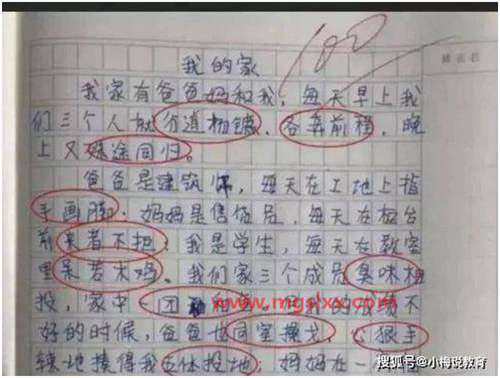 100
我的家
我家有爸爸妈和我，每天早上我
们三个人就分道扬镳、各奔前程，晚
上又殊途同归。
爸爸是建筑师，每天在工地上指
手画脚，妈妈是售货员，每天在柜台
前来者不拒；我是学生，每天在教室
里呆若木鸡。我们家三个成员臭味相
www.mgslxx.com
投，家中一团 我的成绩不
好的时候，爸爸也同室操戈，心狠手
辣地揍得我五体投地，妈妈在一
搜狐号@小梅说教育